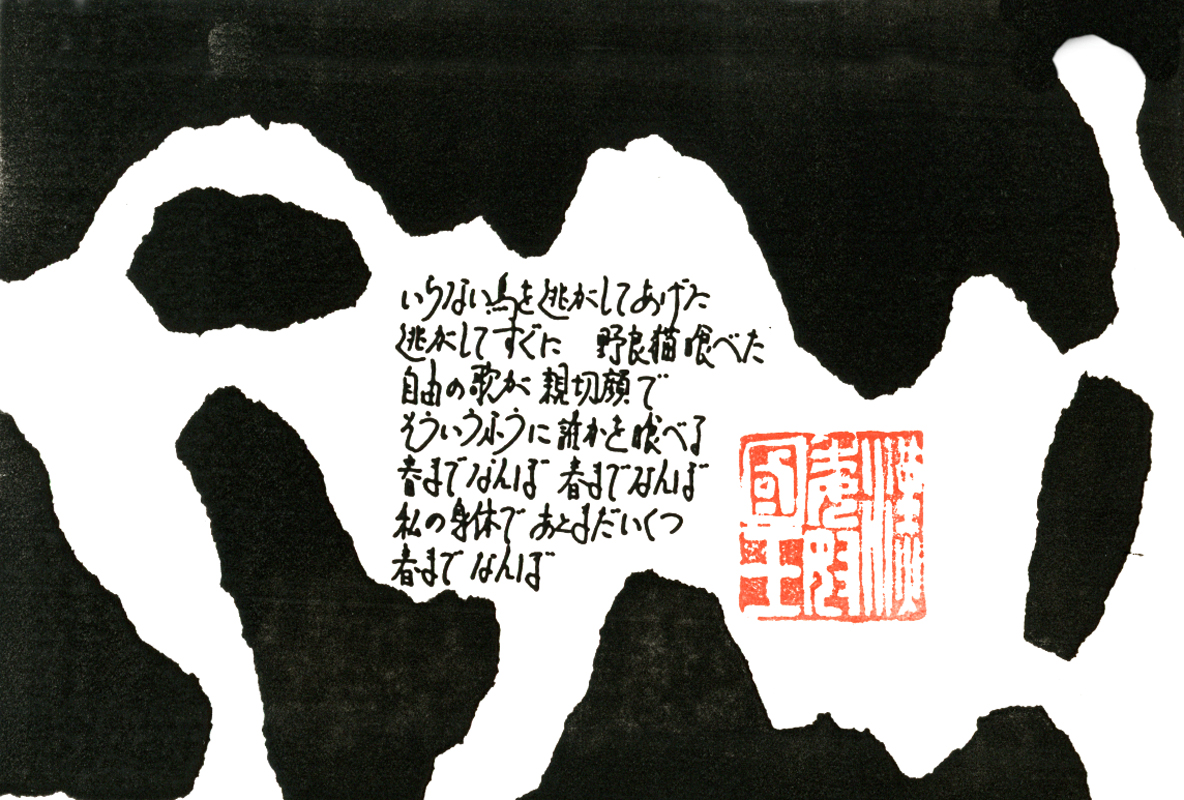 いらない鳥を逃がしてあげた
逃がしてすぐに　野良猫喰べた
自由の歌が 親切顔で
そういうふうに誰かを喰べる
春までなんぼ 春までなんぼ
私の身体で あとまだいくつ
春まで なんぼ